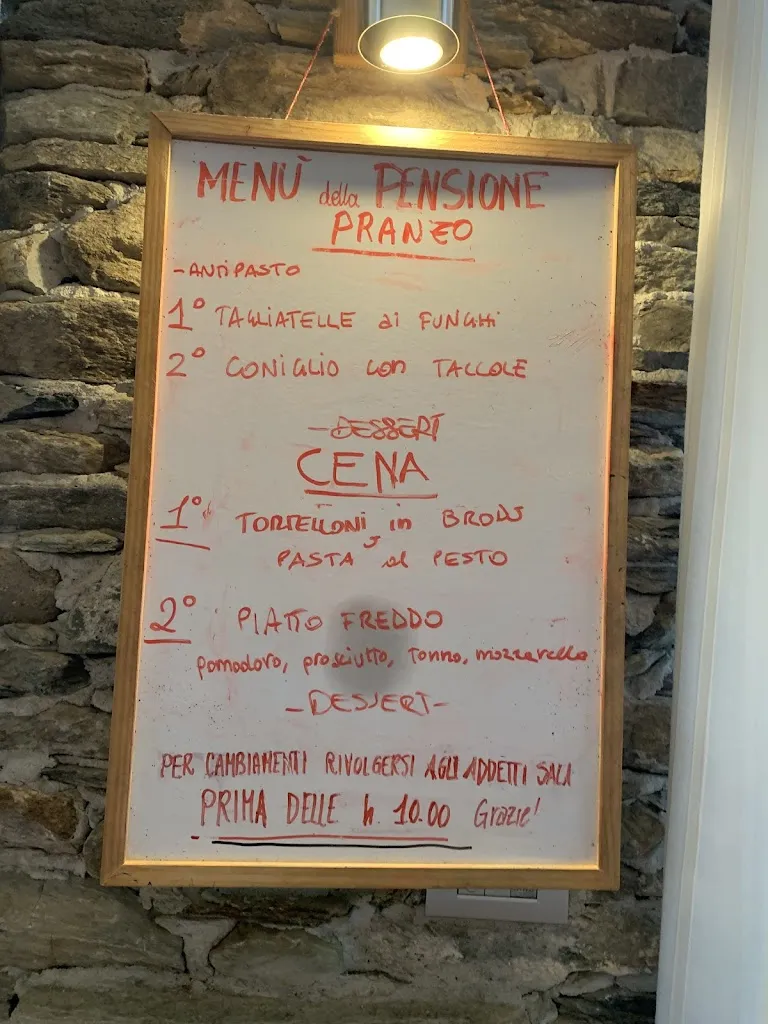 MENÙ della PENSIONE
PRANZO
- ANTIPASTO
1° TAGLIATELLE ai FUNGHI
2° CONIGLIO con TACCOLE
- DESSERT
CENA
1° TORTELLONI in BRODO
PASTA al PESTO
2° PIATTO FREDDO
pomodoro, prosciutto, tonno, mozzarella
- DESSERT -
PER CAMBIAMENTI RIVOLGERSI AGLI ADDETTI SALA
PRIMA DELLE h. 10.00 Grazie!